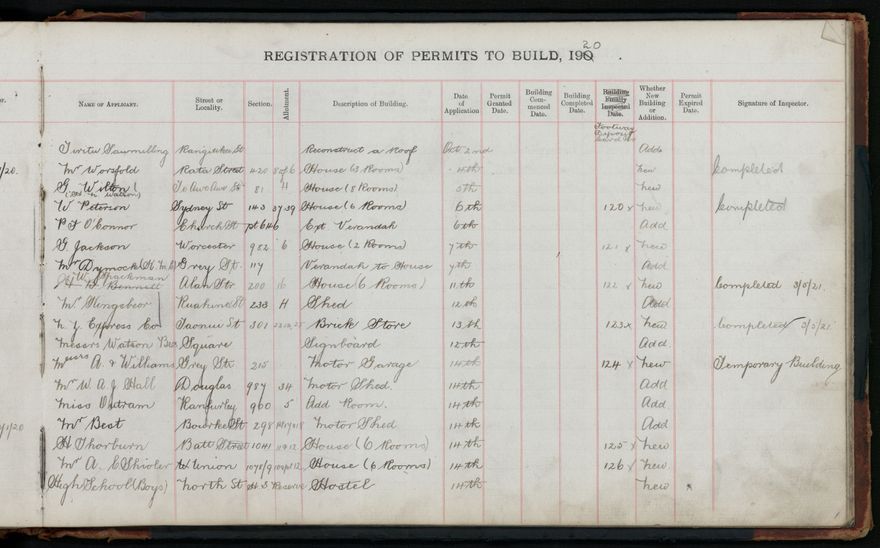 REGISTRATION OF PERMITS TO BUILD, 1920.
NAME OF APPLICANT. Street or Locality. Section. Allotment. Description of Building. Date of Application Permit Granted Date. Building Commenced Date. Building Completed Date. Building Finally Inspected Date. Whether New Building or Addition. Permit Expired Date. Signature of Inspector.
Footway Deposit
Sawmilling Rangitikei St Reconstruct a Roof Oct 2nd Add
Mr Worsfold Rata Street 420 6 House (3 Rooms) 4th New Completed
G Wilton Te Awe Awe St 81 11 House (8 Rooms) 5th New
W Peterson Sydney St 143 37.39 House (6 Rooms) 6th 120 x New Completed
P J O'Connor Church St pt 646 Ext Verandah 6th Add
G. Jackson Worcester 982 6 House (2 Rooms) 7th 121 x New
Mr Dymock Grey St. 117 Verandah to House 7th Add
W. Spackman
Bennett Alan Str 200 16 House (6 Rooms) 11th 122 x New Completed 3/5/21.
Mr Slingsbeor Ruahine St 233 4 Shed 12th Add
N Z Express Co Taonui St 301 Brick Store 13th 123 x New Completed 3/5/21
Messrs Watson Bros Square Signboard 12th Add
Messrs A. & Williams Grey Str 215 Motor Garage 14th 124 x New Temporary Building
Mr W. A. J Hall Douglas 987 34 Motor Shed 14th Add
Miss Outram Ranfurley 960 5 Add Room. 14th Add
Mr Best Bourke St 298 Motor Shed 14th Add
H Thorburn Batt Street 1041 House (6 Rooms) 14th 125 x New
Mr A. E Shirler Union 1078/9 House (6 Rooms) 14th 126 x New
High School (Boys) North St Reserve Hostel 14th New